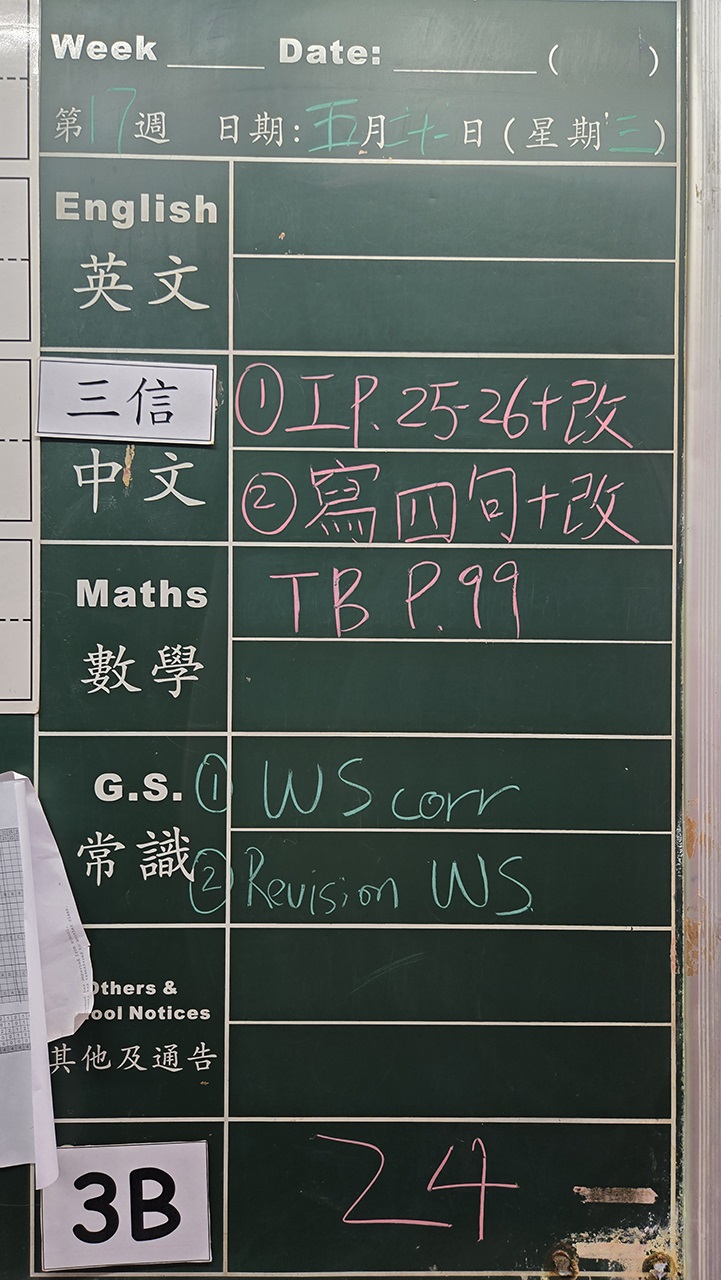 Week ______ Date: _________ ( )
第17週 日期:五月廿一日(星期三)
English
英文
三信
中文
① 工P.25-26+改
② 寫四句+改
Maths
數學
TB P.99
G.S.
常識
① WS corr
② Revision WS
Others &
ool Notices
其他及通告
3B
24